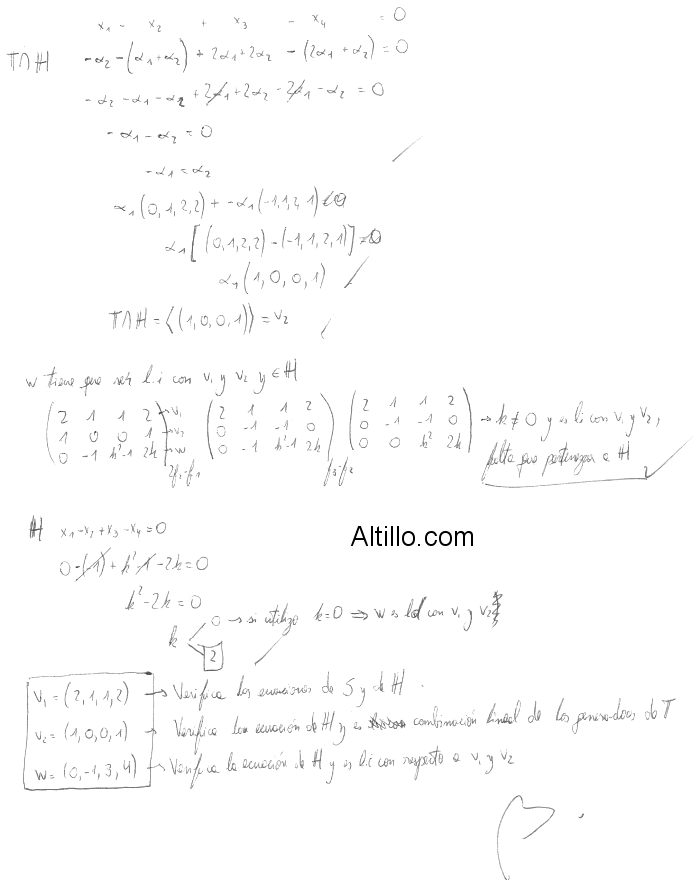 x₁ - x₂ + x₃ - x₄ = 0
Π∩ℍ -α₂ - (α₁+α₂) + 2α₁+2α₂ - (2α₁+α₂) = 0
-α₂ - α₁ - α₂ + 2α₁ + 2α₂ - 2α₁ - α₂ = 0
-α₁ - α₂ = 0
-α₁ = α₂
α₁(0,1,2,2) + -α₁(-1,1,2,1) = 0
α₁[(0,1,2,2) - (-1,1,2,1)] = 0
α₁(1,0,0,1)
Π∩ℍ = ⟨(1,0,0,1)⟩ = v₂
w tiene que ser l.i con v₁ y v₂ y ∈ ℍ
(2 1 1 2) → v₁ (2 1 1 2) (2 1 1 2)
(1 0 0 1) → v₂ (0 -1 -1 0) (0 -1 -1 0) → k ≠ 0 y es li con v₁ y v₂,
(0 -1 k²-1 2k) → w (0 -1 k²-1 2k) (0 0 k² 2k) falta que pertenezca a ℍ
2f₂-f₁ f₃-f₂
ℍ x₁-x₂+x₃-x₄=0
0-(-1)+k²-1-2k=0
k²-2k=0
k 0 → si utilizo k=0 ⇒ w es ld con v₁ y v₂
2
Altillo.com
v₁ = (2,1,1,2) → Verifica las ecuaciones de S y de ℍ.
v₂ = (1,0,0,1) → Verifica la ecuación de ℍ y es combinación lineal de los generadores de T
w = (0,-1,3,4) → Verifica la ecuación de ℍ y es l.i con respecto a v₁ y v₂